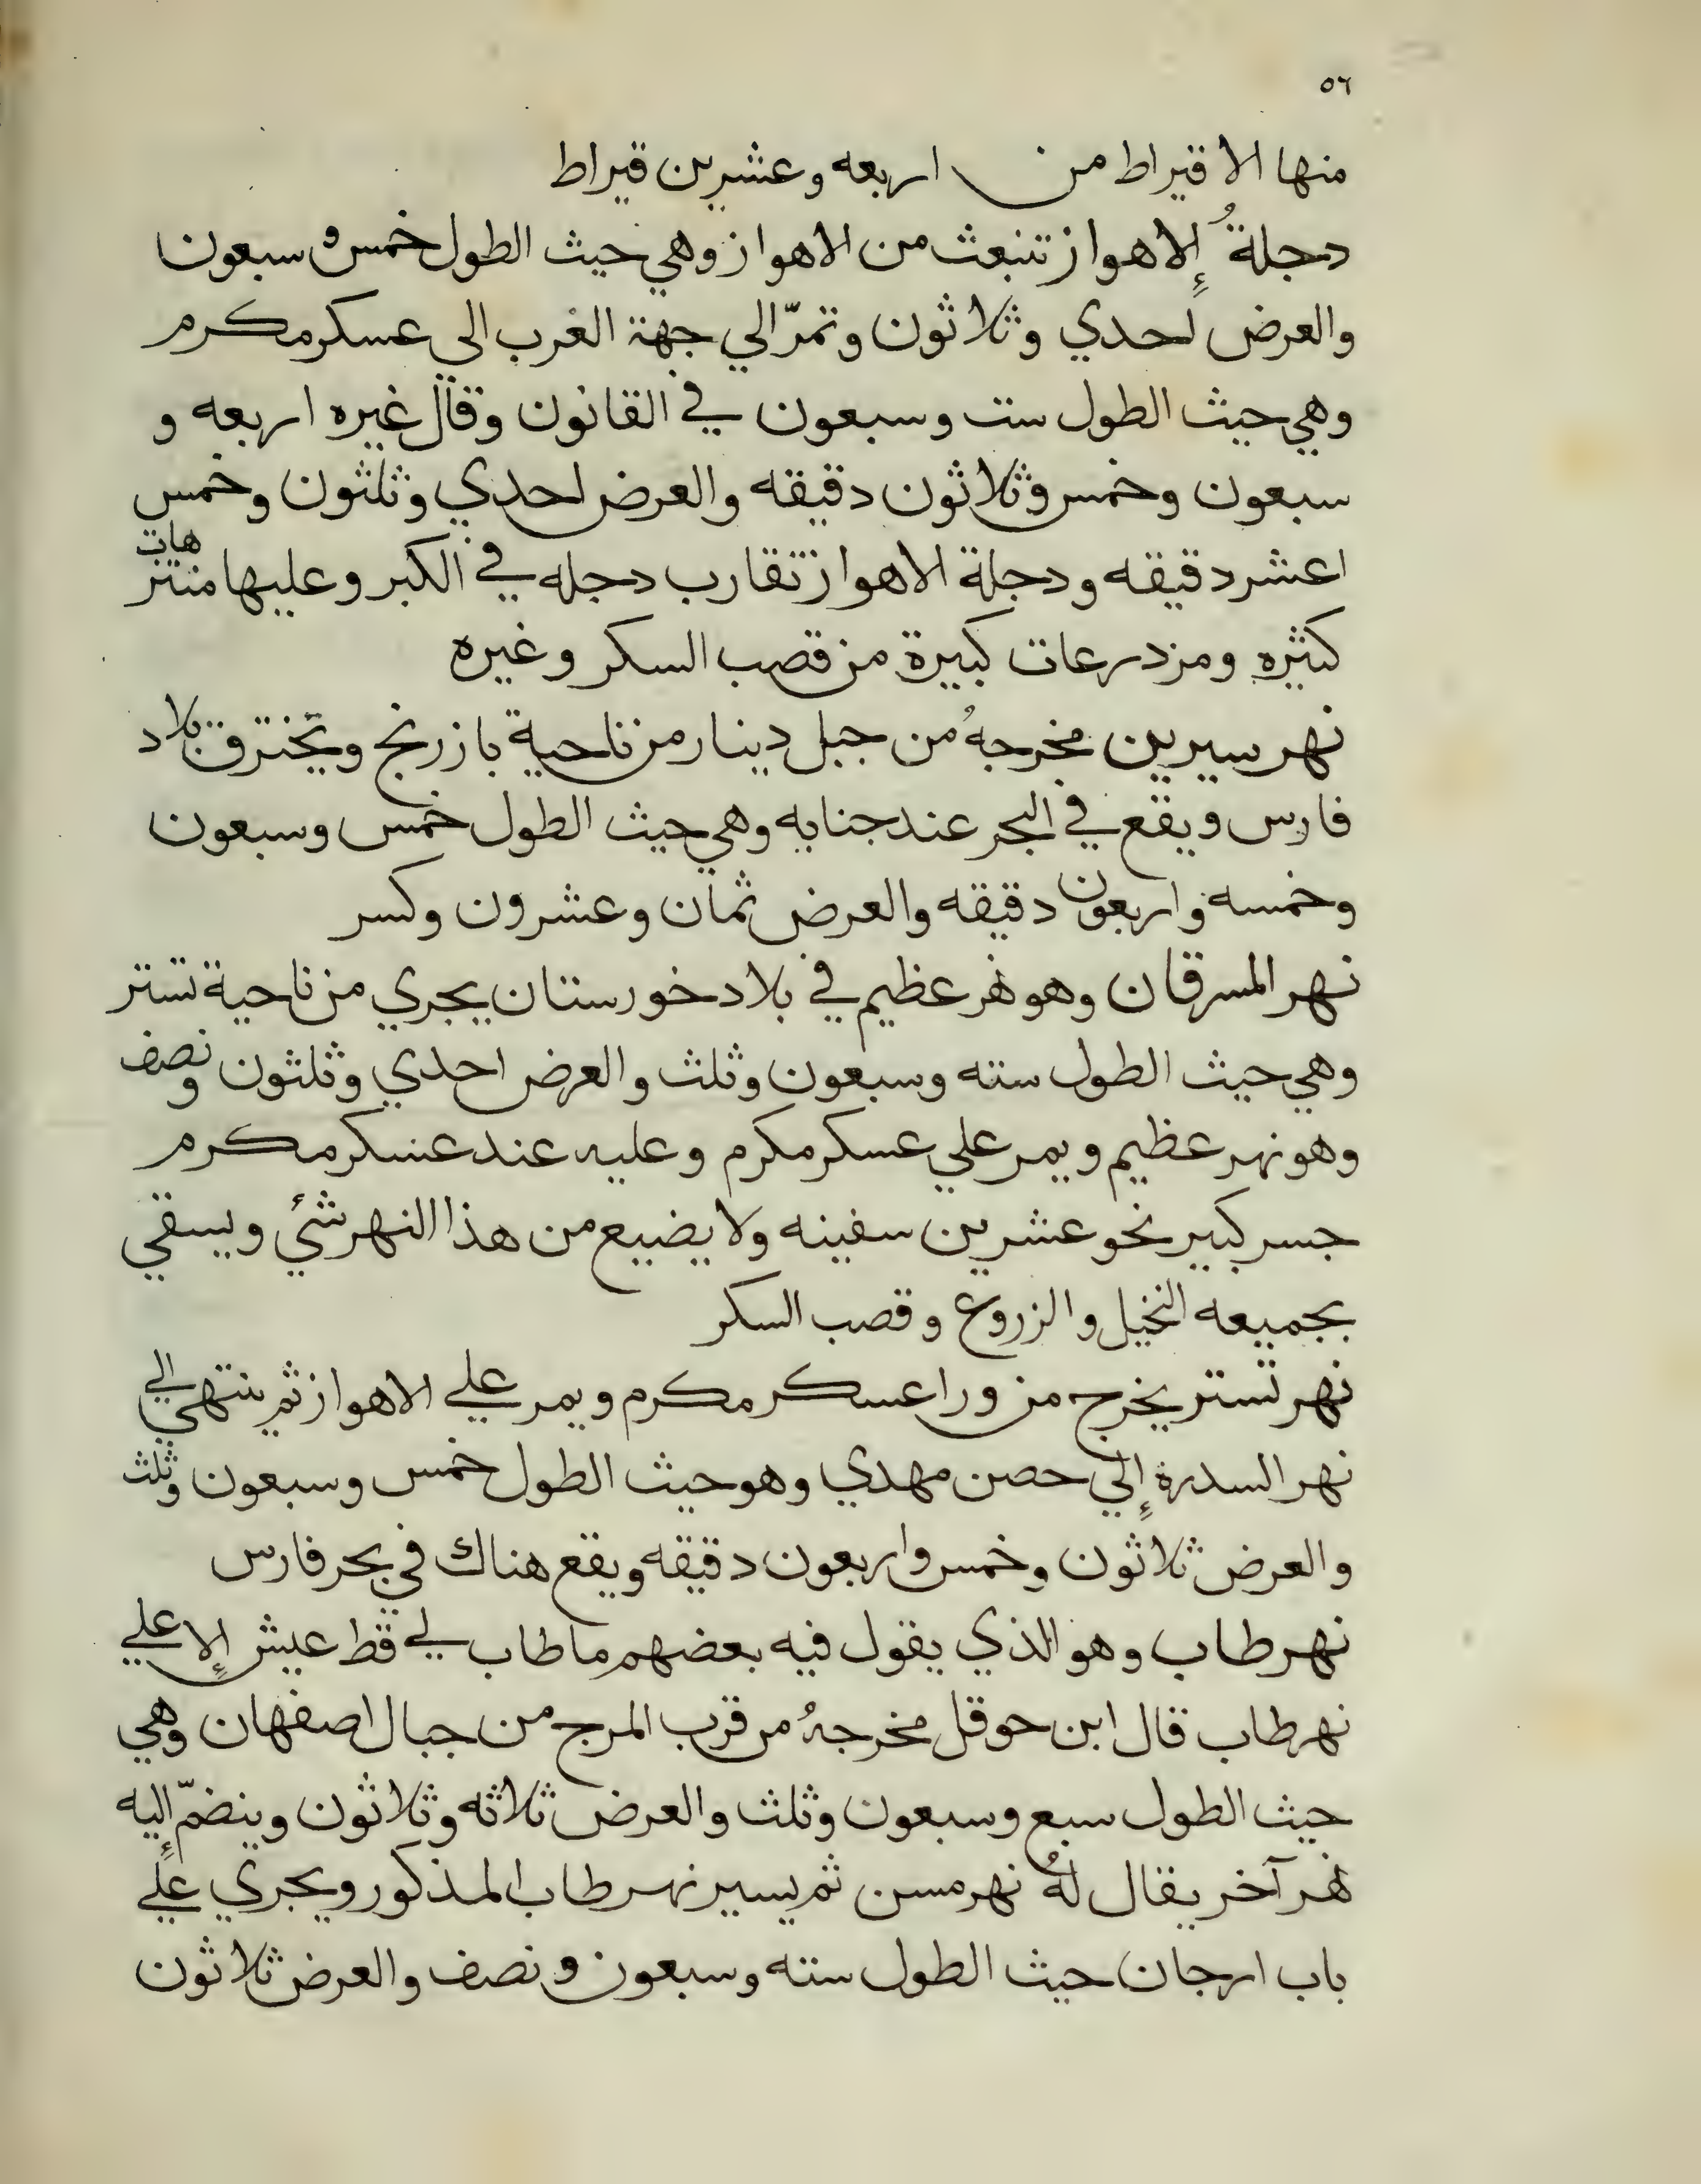 ٥٦
منها الا قيراط من اربعه وعشرين قيراط
دجلةُ إلاهواز تنبعث من الاهواز وهي حيث الطول خمس و سبعون
والعرض احدي وثلاثون وتمرّ الي جهة الغرب الي عسكر مكرم
وهي حيث الطول ست وسبعون في القانون وقال غيره اربعه و
سبعون وخمس وثلاثون دقيقه والعرض احدي وثلثون وخمس
اعشر دقيقه ودجلة الاهواز تقارب دجله في الكبر وعليها منتزهات
كثيره ومزدرعات كبيرة من قصب السكر وغيره
نهر سيرين مخرجهُ من جبل دينار من ناحية بازرنج ويخترق بلاد
فارس ويقع في البحر عند جنابه وهي حيث الطول خمس وسبعون
وخمسه واربعون دقيقه والعرض ثمان وعشرون وكسر
نهر المسرقان وهو نهر عظيم في بلاد خورستان يجري من ناحية تستر
وهي حيث الطول سته وسبعون وثلث والعرض احدي وثلثون ونصف
وهو نهر عظيم ويمر علي عسكر مكرم وعليه عند عسكر مكرم
جسر كبير نحو عشرين سفينه ولا يضيع من هذا النهر شئ ويسقي
بجميعه النخيل والزروع وقصب السكر
نهر تستر يخرج من ورا عسكر مكرم ويمر علي الاهواز ثم ينتهي الي
نهر السدرة إلي حصن مهدي وهو حيث الطول خمس وسبعون وثلث
والعرض ثلاثون وخمس واربعون دقيقه ويقع هناك في بحر فارس
نهر طاب وهو الذي يقول فيه بعضهم ما طاب لي قط عيش إلا علي
نهر طاب قال ابن حوقل مخرجهُ من قرب المرج من جبال اصفهان وهي
حيث الطول سبع وسبعون وثلث والعرض ثلاثه وثلاثون وينضمّ إليه
نهر آخر يقال لهُ نهر مسن ثم يسير نهر طاب المذكور ويجري علي
باب ارجان حيث الطول سته وسبعون ونصف والعرض ثلاثون